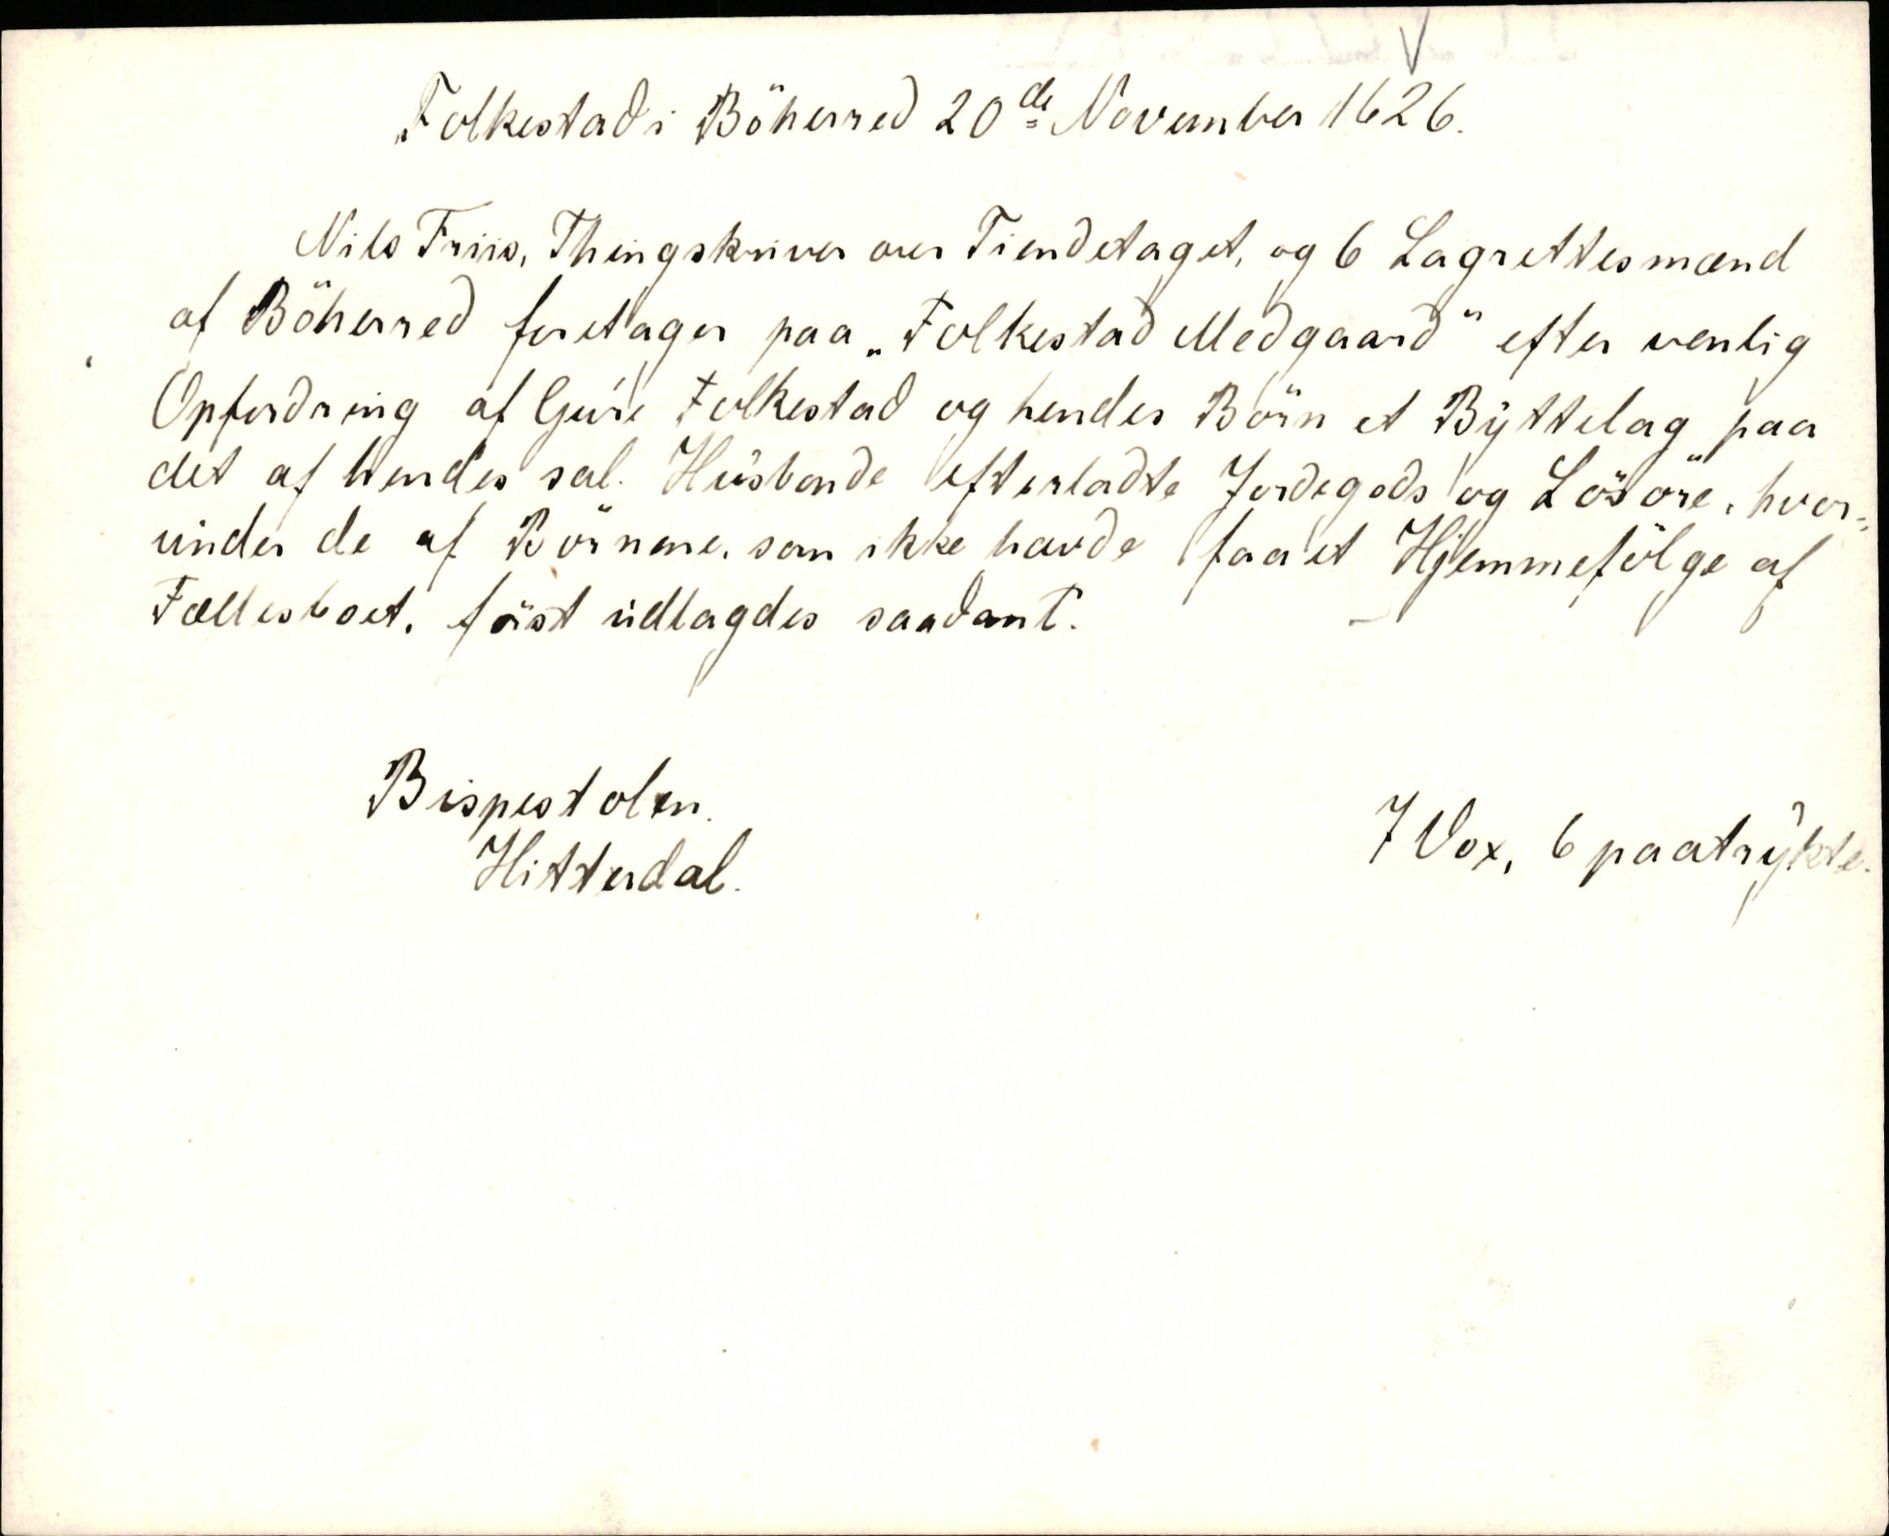 Folkestad i Böherred 20de November 1626.
Nils Friis, Thingskriver over Tiendetaget, og 6 Lagrettesmænd
af Böherred foretager paa „Folkestad Medgaard" efter venlig
Opfordring af Guro Folkestad og hendes Börn et Byttelag paa
det af hendes sal. Husbonde efterladte Jordegods og Lösöre, hvor=
under de af Börnene, som ikke havde faaet Hjemmefölge af
Fællesboet, först udlagdes saadant.
Bispestolen.
Hitterdal.
7 Vox, 6 paatrykte.